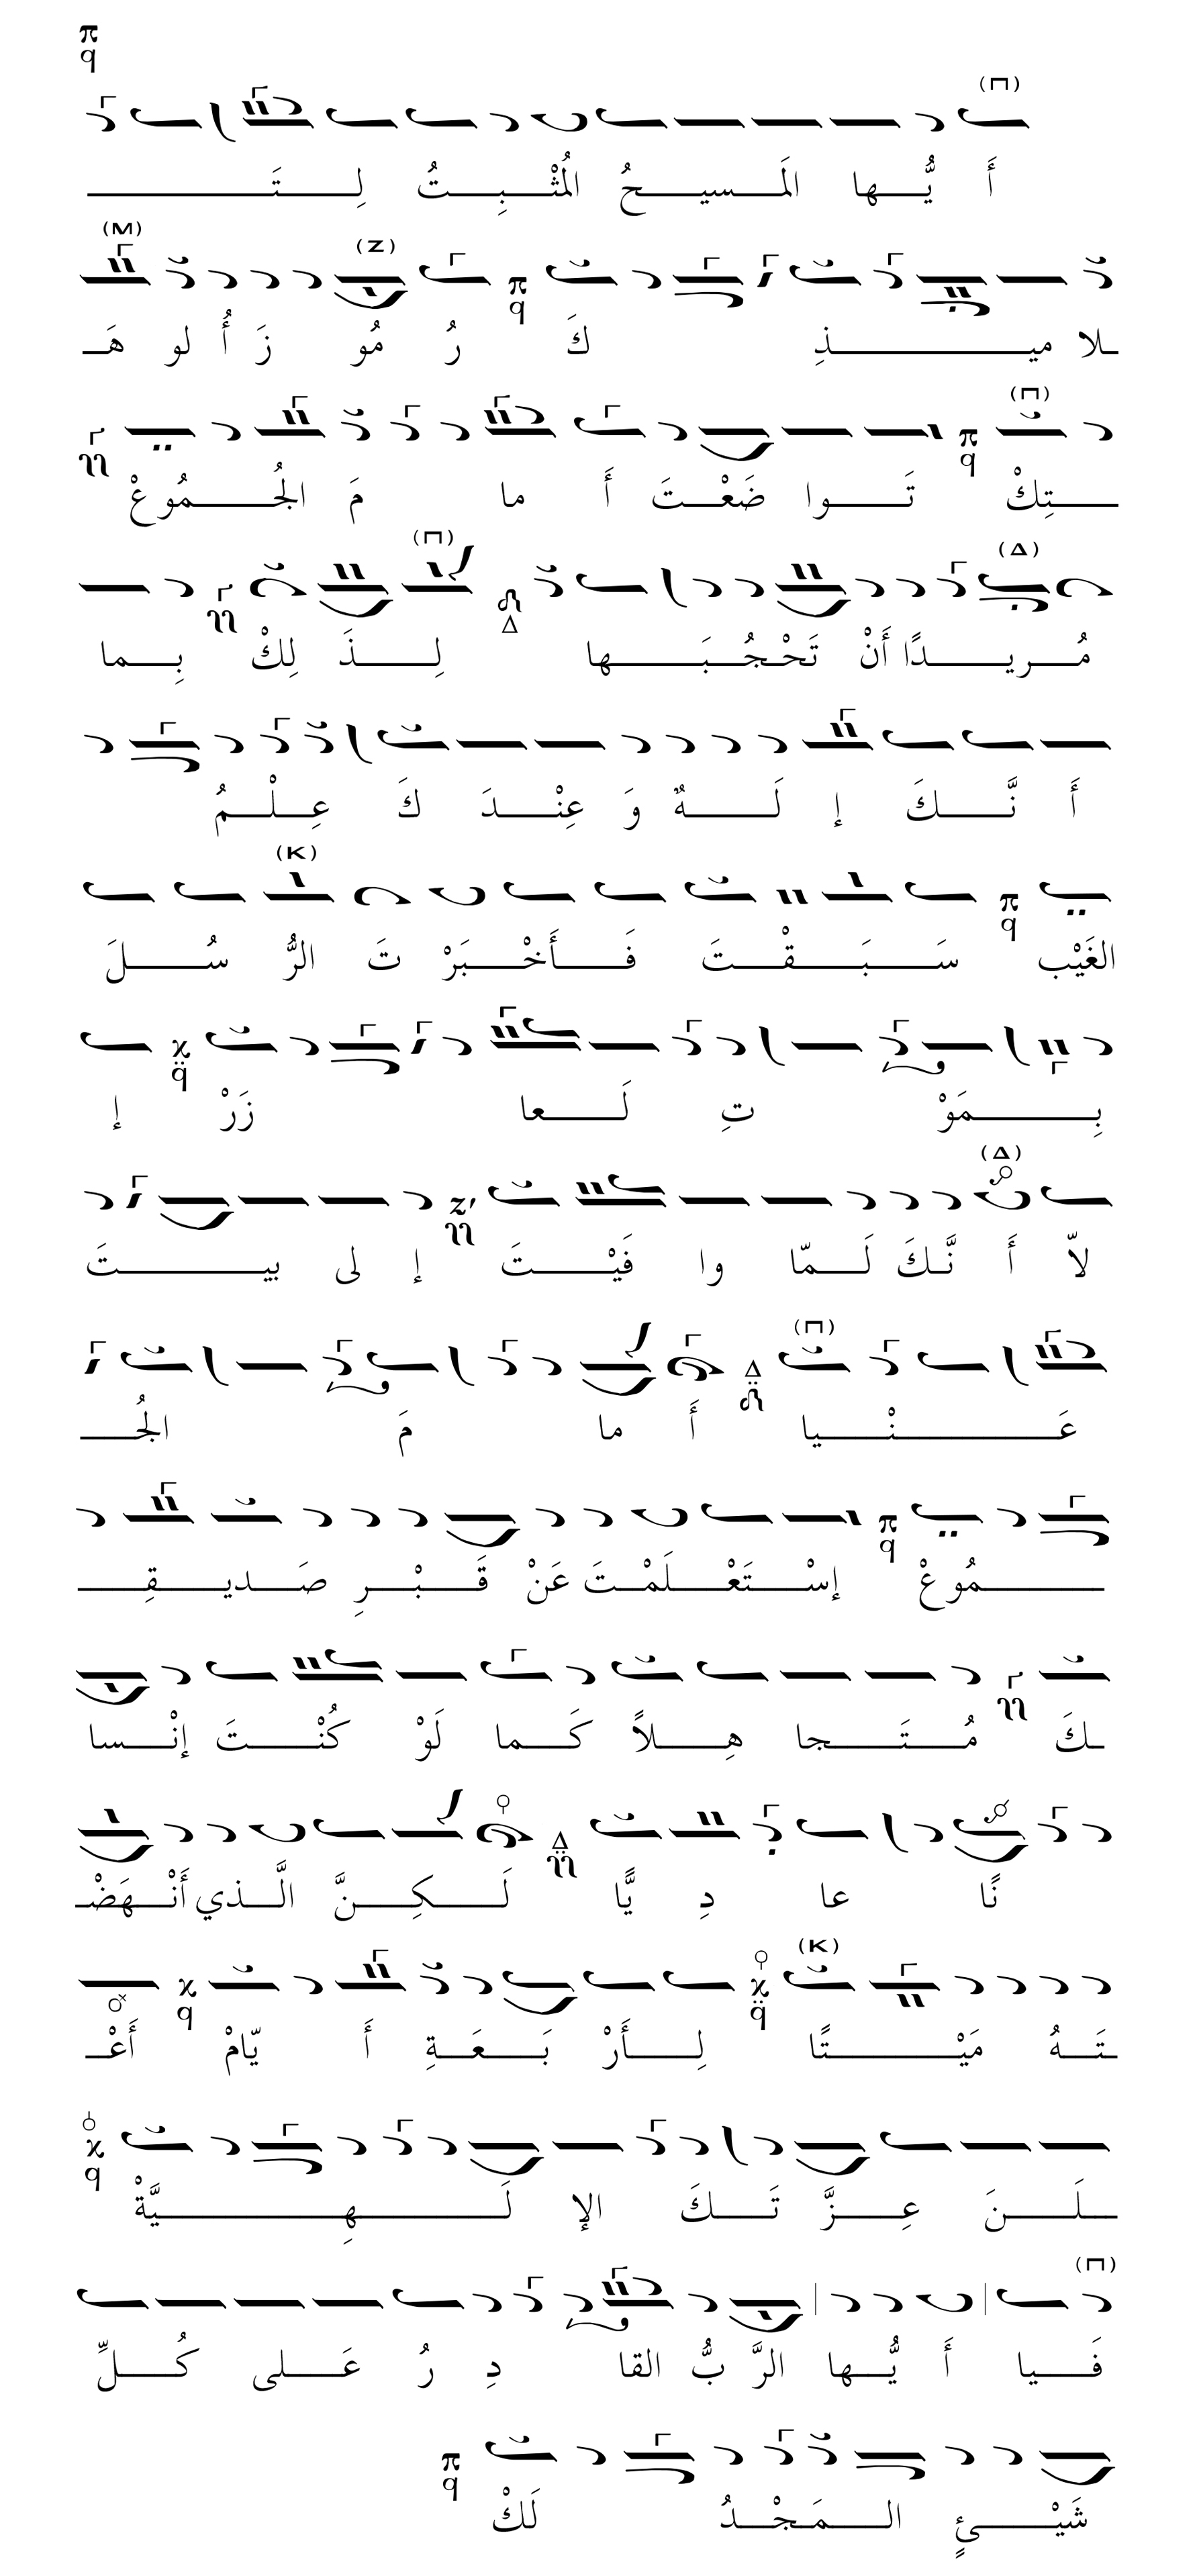 π
q
(Π)
أَ يُّـــها المَـــسيـــحُ المُثْـــبِـــتُ لِـــتَـــ
(M) (Z) π q
ـلا ميـــذِ كَ رُ مُو زَ أُ لو هَـ
(Π) π q
ـــتِكْ تَـــوا ضَعْـــتَ أَ ما مَ الجُـــمُوعْ
(Π) (Δ) Δ
مُـــريـــدًا أَنْ تَحْـجُـــبَـــها لِـــذَ لِكْ بِـــما
أَ نَّـــكَ إ لَـــهٌ وَ عِنْـــدَ كَ عِـــلْـــمُ
(K) π q
الغَيْب سَـــبَـــقْـــتَ فَـــأَخْـــبَرْ تَ الرُّ سُـــلَ
χ q
بِـــمَوْ تِ لَـــعا زَرْ إ
(Δ) z′
لاّ أَ نَّـكَ لَـــمّا وا فَيْـــتَ إ لى بيـــتَ
(Π) Δ
عَـــنْـــيا أَ ما مَ الجُـــ
π q
ـــمُوعْ إسْـــتَعْـــلَمْـــتَ عَنْ قَـــبْـــرِ صَـــديـــقِـــ
ـكَ مُـــتَـــجا هِـــلاً كَـــما لَوْ كُنْـــتَ إنْـــسا
Δ
نًا عا دِ يًّا لَـــكِـــنَّ الَّـــذي أَنْـــهَضْـ
(K) χ q χ q
ـتَـــهُ مَيْـــتًا لِـــأَرْ بَـــعَـــةِ أَ يّامْ أَعْـ
χ q
ـــلَـــنَ عِـــزَّ تَـــكَ الإ لَـــهِـــيَّةْ
(Π)
فَـــيا أَ يُّـــها الرَّ بُّ القا دِ رُ عَـــلى كُـــلِّ
π q
شَيْـــئٍ الـــمَـجْـــدُ لَكْ